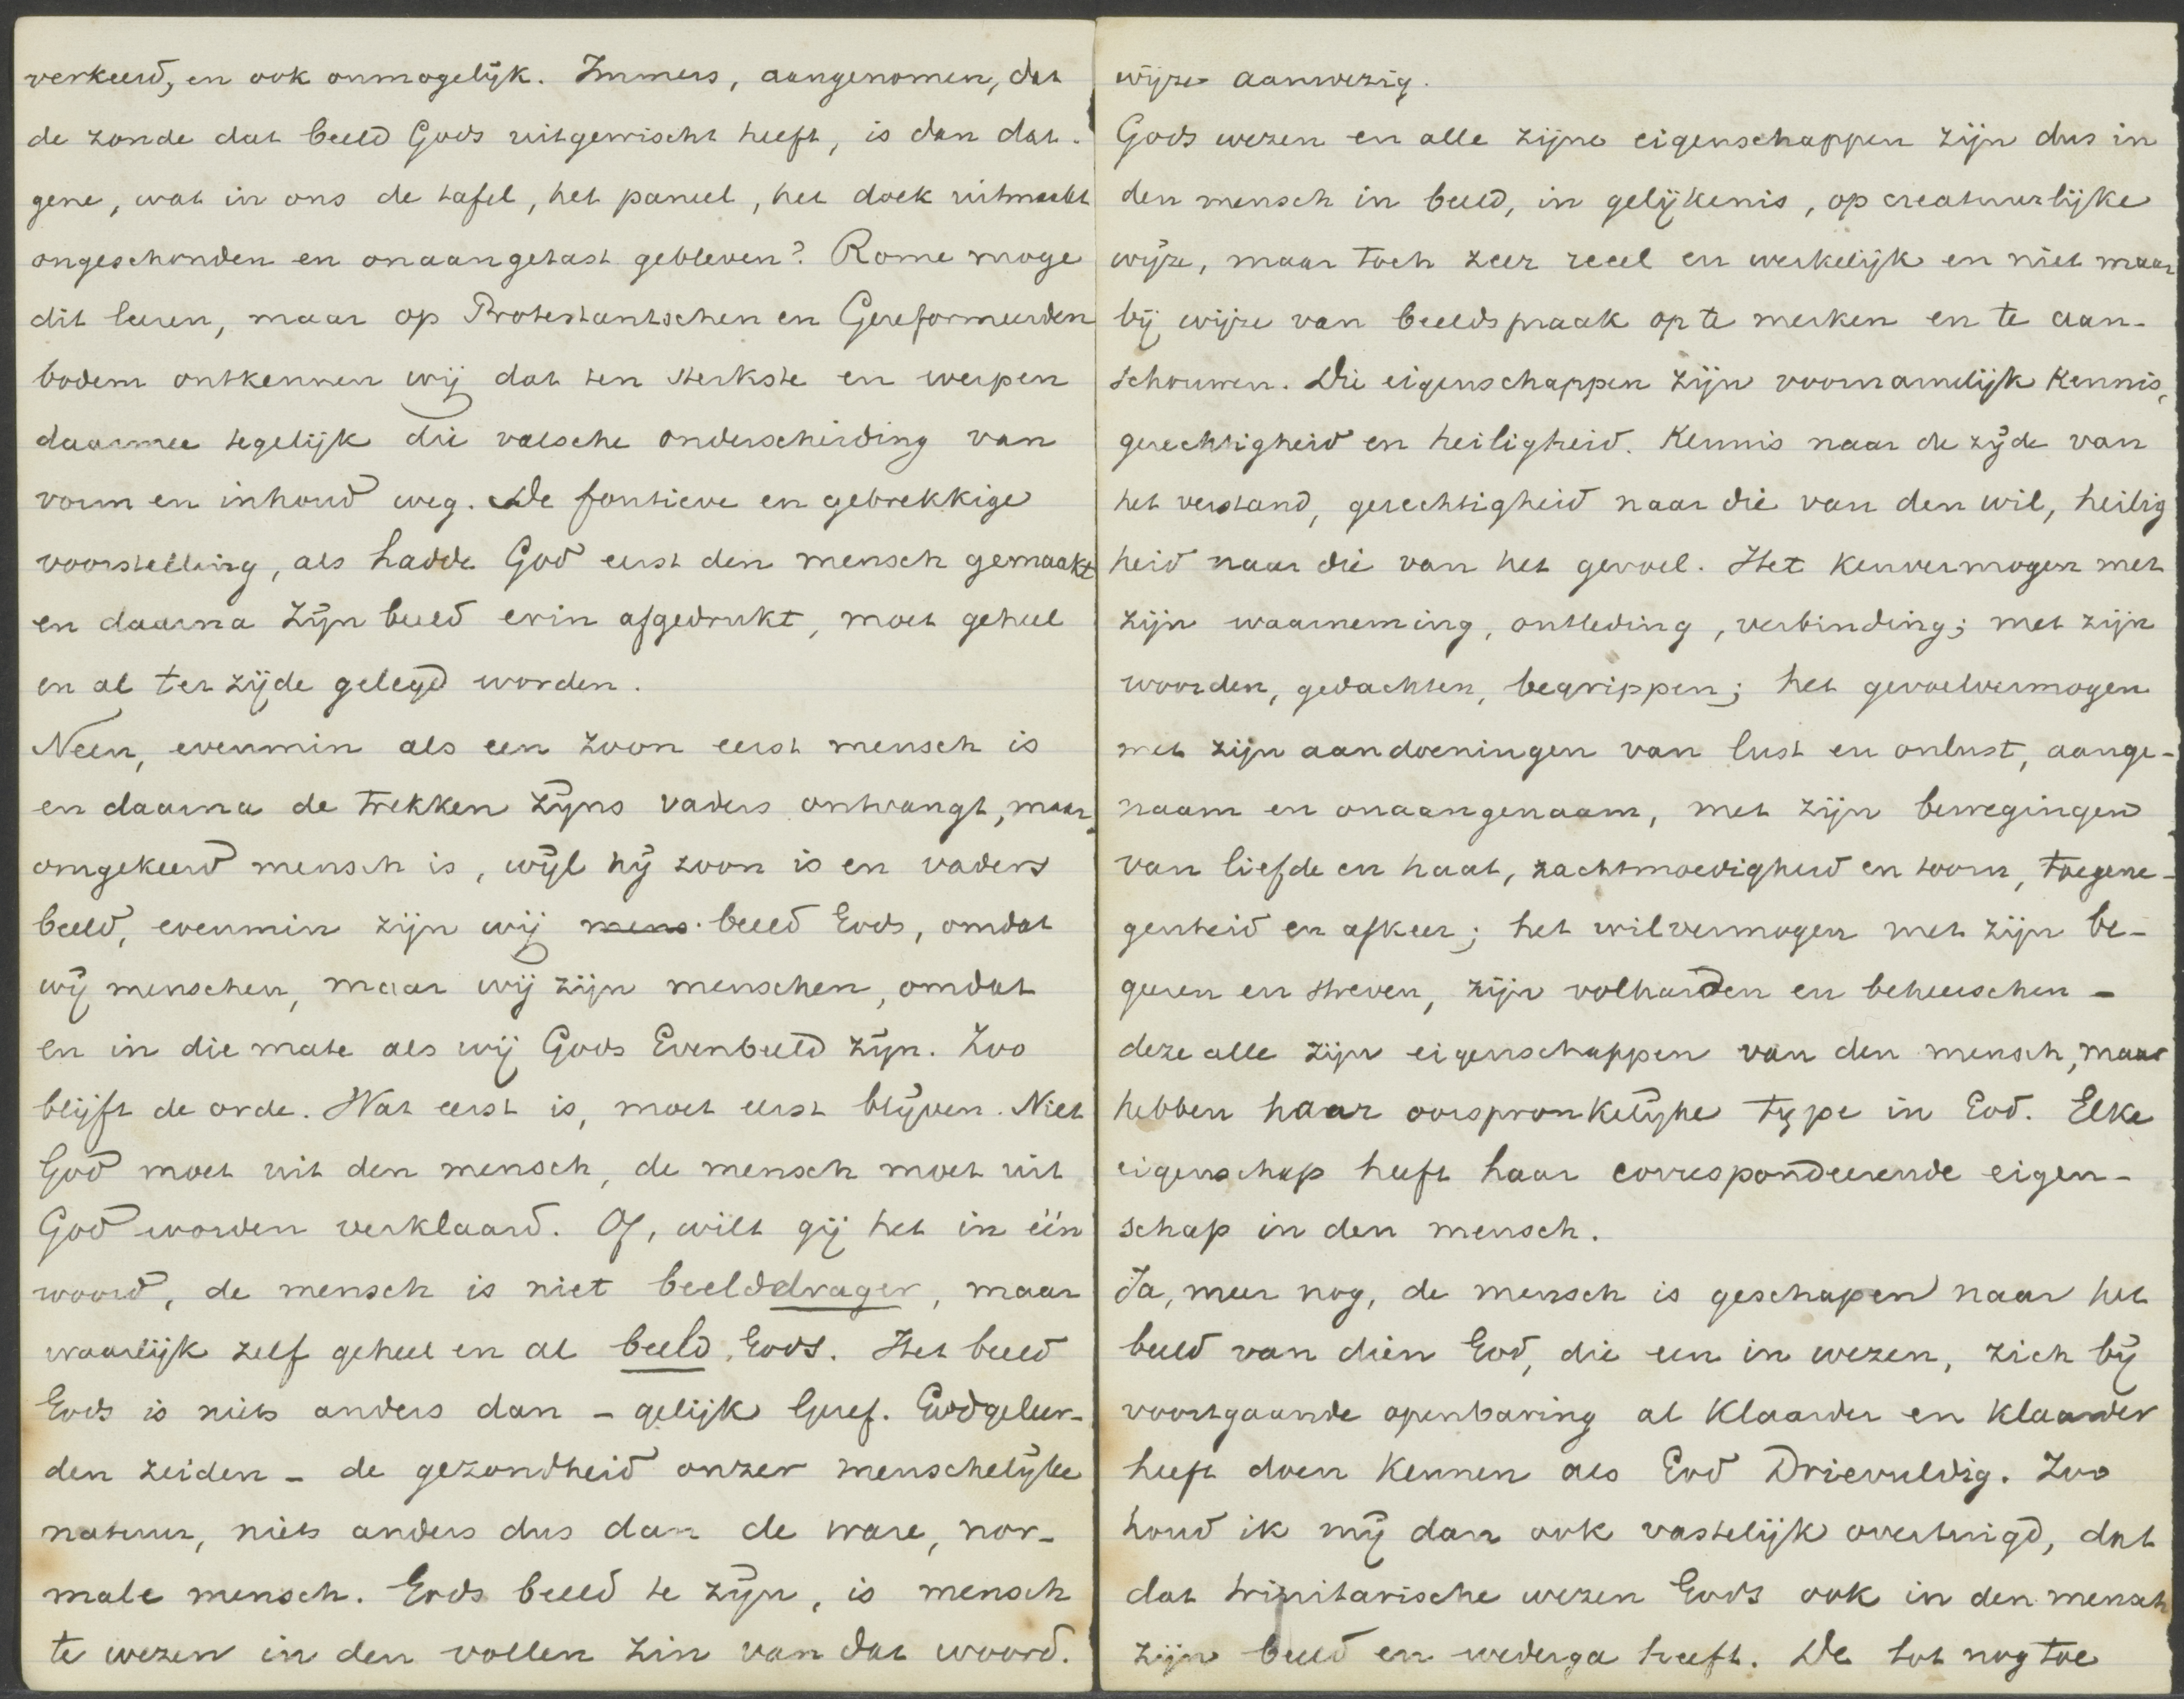 verkeerd, en ook onmogelijk. Immers, aangenomen, dat
de zonde dat beeld Gods uitgewischt heeft, is dan dat-
gene, wat in ons de tafel, het paneel, het doek uitmaakt
ongeschonden en onaangetast gebleven? Rome moge
dit leeren, maar op Protestantschen en Gereformeerden
bodem ontkennen wij dat ten sterkste en werpen
daarmee tegelijk die valsche onderscheiding van
vorm en inhoud weg. De foutieve en gebrekkige
voorstelling, als hadde God eerst den mensch gemaakt
en daarna Zijn beeld erin afgedrukt, moet geheel
en al ter zijde gelegd worden.
Neen, evenmin als een zoon eerst mensch is
en daarna de trekken zijns vaders ontvangt, maar
omgekeerd mensch is, wijl hij zoon is en vaders
beeld, evenmin zijn wij mens beeld Gods, omdat
wij menschen, maar wij zijn menschen, omdat
en in die mate als wij Gods Evenbeeld zijn. Zoo
blijft de orde. Wat eerst is, moet eerst blijven. Niet
God moet uit den mensch, de mensch moet uit
God worden verklaard. Of, wilt gij het in één
woord, de mensch is niet beelddrager, maar
waarlijk zelf geheel en al beeld Gods. Het beeld
Gods is niets anders dan - gelijk Geref. Godgeleer-
den zeiden - de gezondheid onzer menschelijke
natuur, niets anders dus dan de ware, nor-
male mensch. Gods beeld te zijn, is mensch
te wezen in den vollen zin van dat woord.
wijze aanwezig.
Gods wezen en alle zijne eigenschappen zijn dus in
den mensch in beeld, in gelijkenis, op creatuurlijke
wijze, maar toch zeer reeel en werkelijk en niet maar
bij wijze van beeldspraak op te merken en te aan-
schouwen. Die eigenschappen zijn voornamelijk kennis,
gerechtigheid en heiligheid. Kennis naar de zijde van
het verstand, gerechtigheid naar die van den wil, heilig
heid naar die van het gevoel. Het kenvermogen met
zijn waarneming, ontleding, verbinding; met zijn
woorden, gedachten, begrippen; het gevoelvermogen
met zijn aandoeningen van lust en onlust, aange-
naam en onaangenaam, met zijn bewegingen
van liefde en haat, zachtmoedigheid en toorn, toegene-
genheid en afkeer; het wilvermogen met zijn be-
geeren en streven, zijn volharden en beheerschen -
deze alle zijn eigenschappen van den mensch, maar
hebben haar oorspronkelijke type in God. Elke
eigenschap heeft haar correspondeerende eigen-
schap in den mensch.
Ja, meer nog, de mensch is geschapen naar het
beeld van dien God, die een in wezen, zich bij
voortgaande openbaring al klaarder en klaarder
heeft doen kennen als God Drievuldig. Zoo
houd ik mij dan ook vastelijk overtuigd, dat
dat trinitarische wezen Gods ook in den mensch
zijn beeld en wederga heeft. De tot nog toe